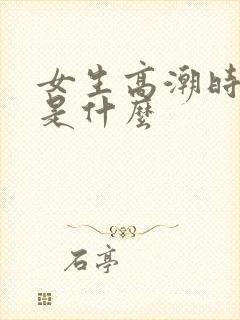 女生高潮时
是什麼
石亭